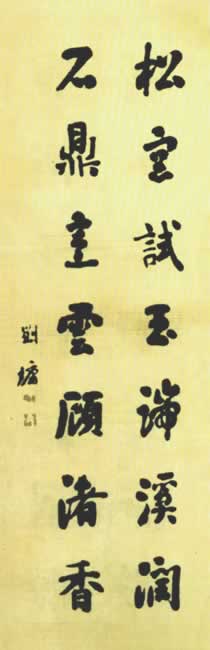 松室試玉端溪潤
石鼎烹雲顧渚香
劉墉